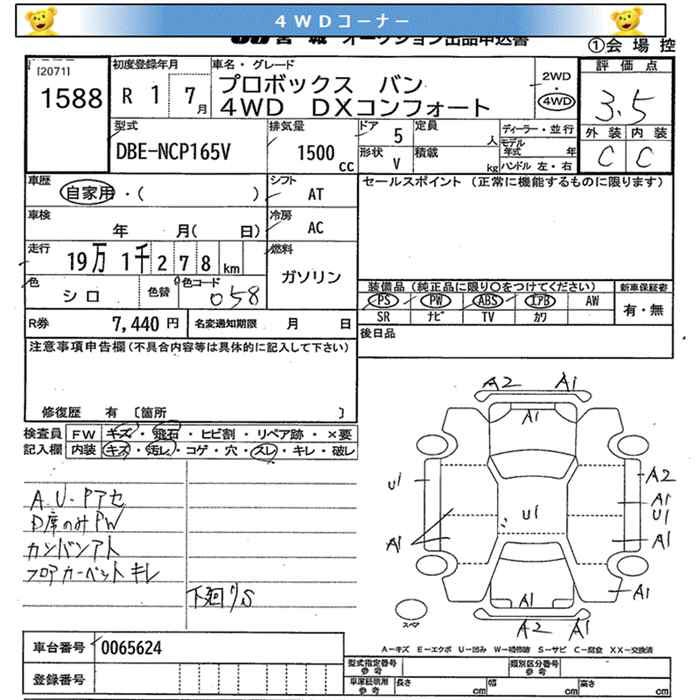 4WDコーナー
オークション出品申込書
①会場控
[2071]
1588
初度登録年月
R 1 7月
車名・グレード
プロボックス バン
4WD DXコンフォート
2WD
・
4WD
評価点
3.5
外装 内装
C C
型式
DBE-NCP165V
排気量
1500 cc
ドア 5
形状 V
定員 人
積載 kg
ディーラー・並行
モデル年式 年
ハンドル 左・右
車歴
自家用・( )
シフト
AT
車検
年 月( 日)
冷房
AC
走行
19万1千278km
燃料
ガソリン
色
シロ
色替
色コード
058
セールスポイント (正常に機能するものに限ります)
装備品(純正品に限り○をつけてください)
PS PW ABS エアB AW
SR ナビ TV カワ
新車保証書
有・無
R券 7,440円
名変通知期限 月 日
後日品
注意事項申告欄(不具合内容等は具体的に記入して下さい)
修復歴 有 〔箇所 〕
検査員記入欄
FW キズ・飛石・ヒビ割・リペア跡・×要
内装 キズ・汚レ・コゲ・穴・スレ・キレ・破レ
A.U-Pアセ
D席のみPW
カンバンアト
フロアカーペットキレ
下廻りS
A2 A1
A1
U1
A2
A1
U1
U1
A1
A1
A1
A1
A2 A1
スペア
A-キズ E-エクボ U-凹み W-補修跡 S-サビ C-腐食 XX-交換済
車台番号 0065624
登録番号
型式指定番号 参考
類別区分番号 参考
車庫証明用 参考
長さ cm
幅 cm
高さ cm